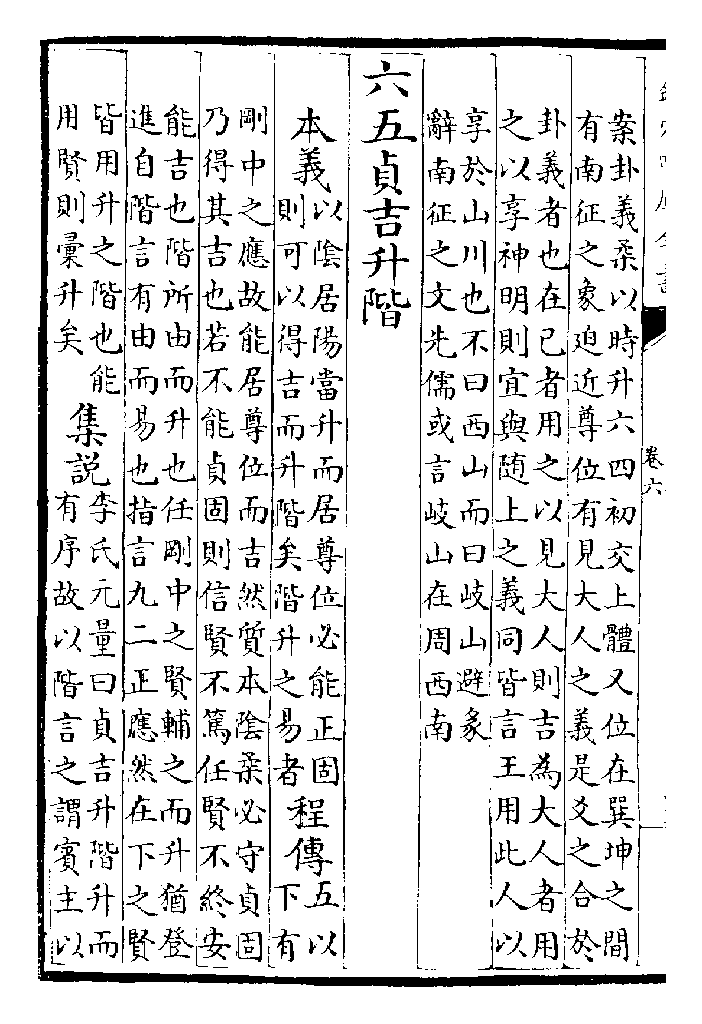 卷六
案卦義柔以時升六四初交上體又位在巽坤之間
有南征之象迫近尊位有見大人之義是爻之合於
卦義者也在已者用之以見大人則吉為大人者用
之以享神明則宜與随上之義同皆言王用此人以
享於山川也不曰西山而曰岐山避彖
辭南征之文先儒或言岐山在周西南
六五貞吉升階
本義
以陰居陽當升而居尊位必能正固
則可以得吉而升階矣階升之易者
程傳
五以
下有
剛中之應故能居尊位而吉然質本陰柔必守貞固
乃得其吉也若不能貞固則信賢不篤任賢不終安
能吉也階所由而升也任剛中之賢輔之而升猶登
進自階言有由而易也指言九二正應然在下之賢
皆用升之階也能
用賢則彙升矣
集説
李氏元量曰貞吉升階升而
有序故以階言之謂賓主以